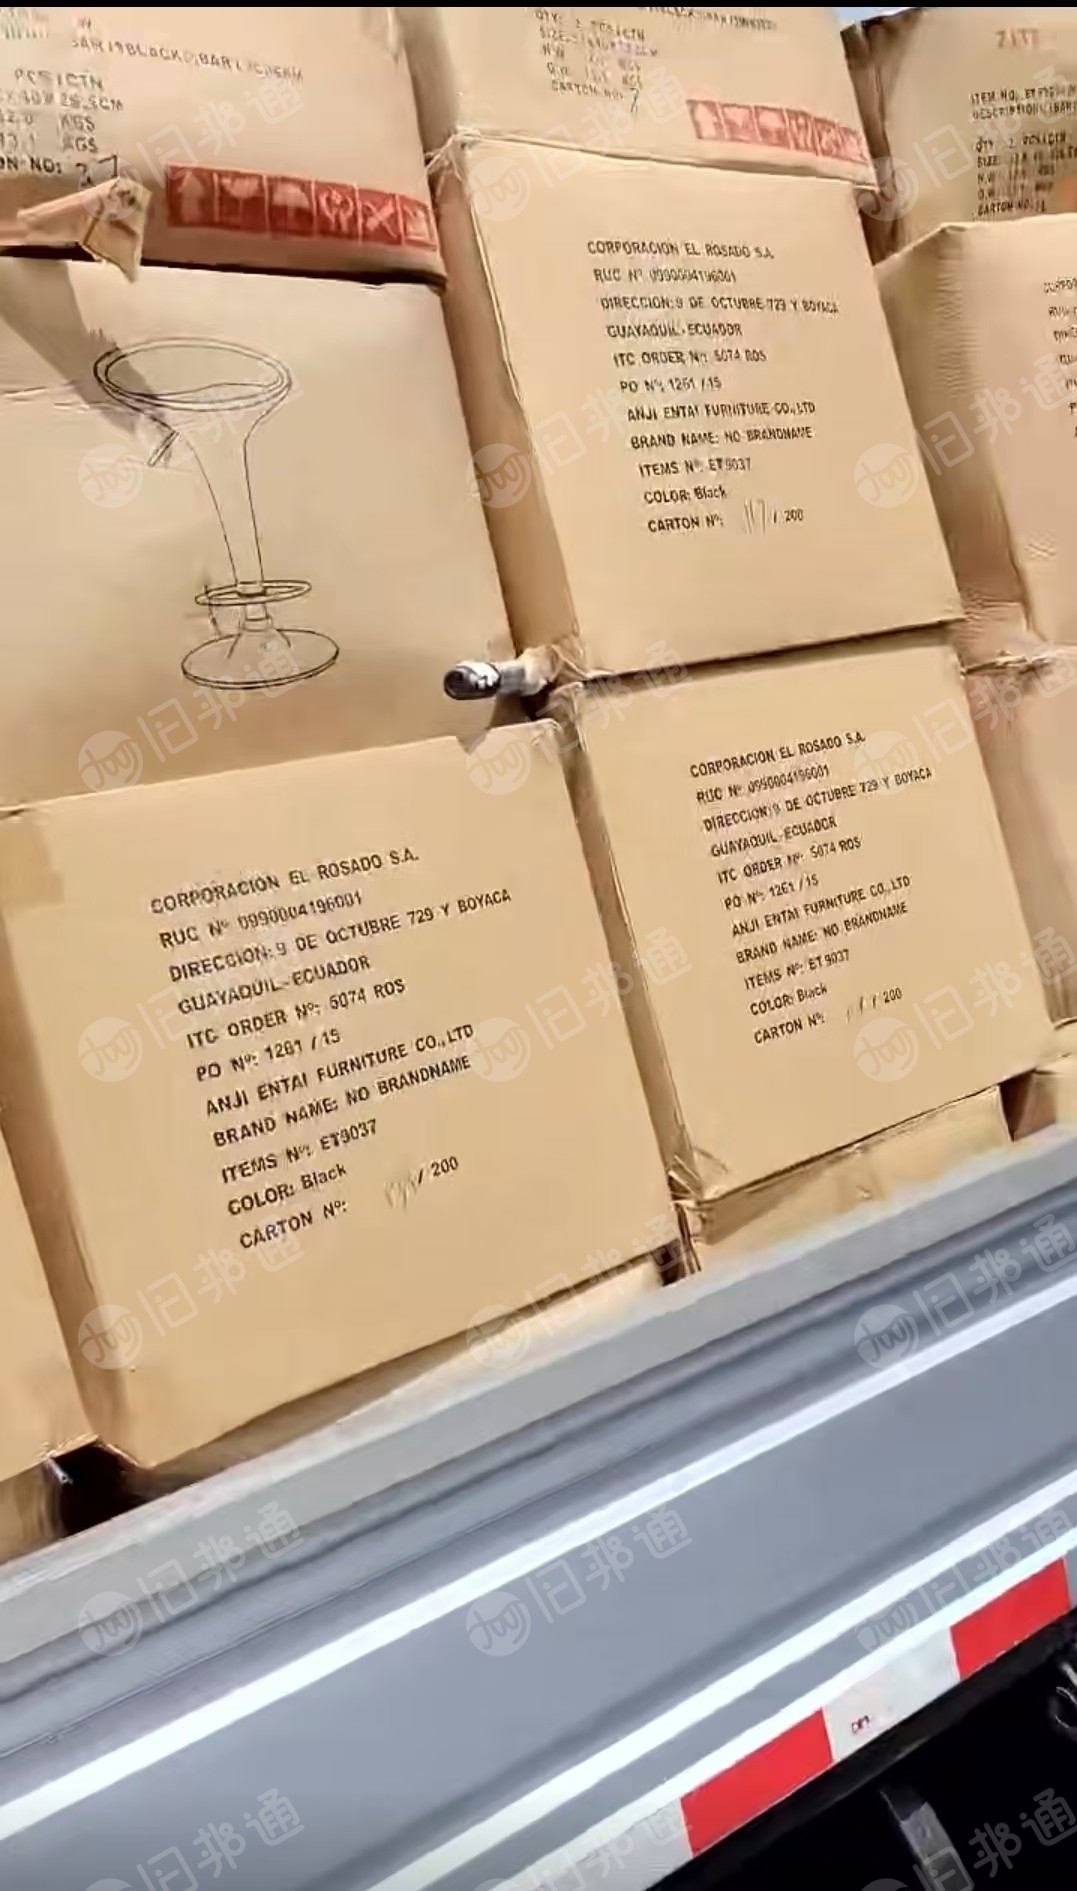 PCS/CTN
KGS
KGS
CARTON NO: 7
CORPORACION EL ROSADO S.A.
RUC Nº 0990004196001
DIRECCION: 9 DE OCTUBRE 729 Y BOYACA
GUAYAQUIL-ECUADOR
ITC ORDER Nº: 5074 ROS
PO Nº: 1261 / 15
ANJI ENTAI FURNITURE CO.,LTD
BRAND NAME: NO BRANDNAME
ITEMS Nº: ET9037
COLOR: Black
CARTON Nº: 117 / 200
CORPORACION EL ROSADO S.A.
RUC Nº 0990004196001
DIRECCION: 9 DE OCTUBRE 729 Y BOYACA
GUAYAQUIL-ECUADOR
ITC ORDER Nº: 5074 ROS
PO Nº: 1261 / 15
ANJI ENTAI FURNITURE CO.,LTD
BRAND NAME: NO BRANDNAME
ITEMS Nº: ET9037
COLOR: Black
CARTON Nº: / 200
CORPORACION EL ROSADO S.A.
RUC Nº 0990004196001
DIRECCION: 9 DE OCTUBRE 729 Y BOYACA
GUAYAQUIL-ECUADOR
ITC ORDER Nº: 5074 ROS
PO Nº: 1261 / 15
ANJI ENTAI FURNITURE CO.,LTD
BRAND NAME: NO BRANDNAME
ITEMS Nº: ET9037
COLOR: Black
CARTON Nº: / 200
旧邦通